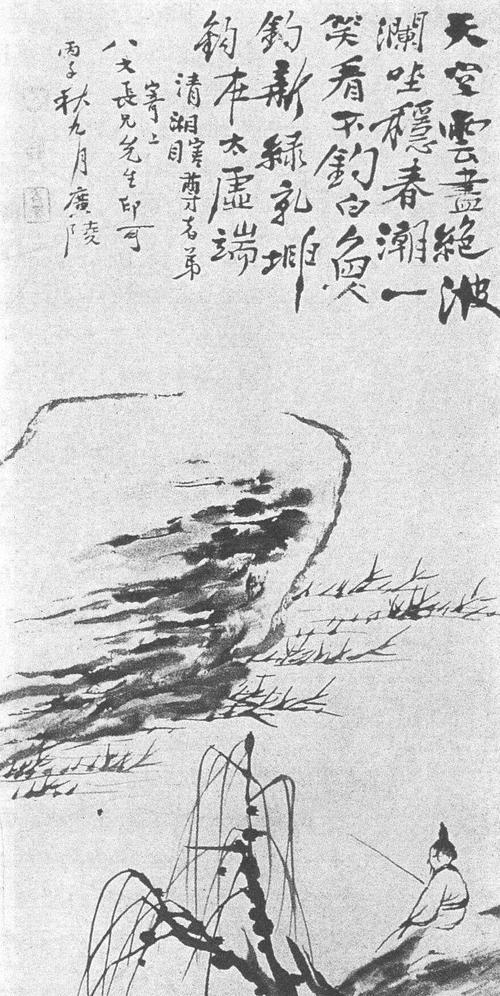 天空雲盡絕波
瀾坐穩春潮一
笑看不釣白魚
釣新綠乳堆
釣在太虛端
清湘瞎尊者弟
寄上
八大長兄先生印可
丙子秋九月廣陵